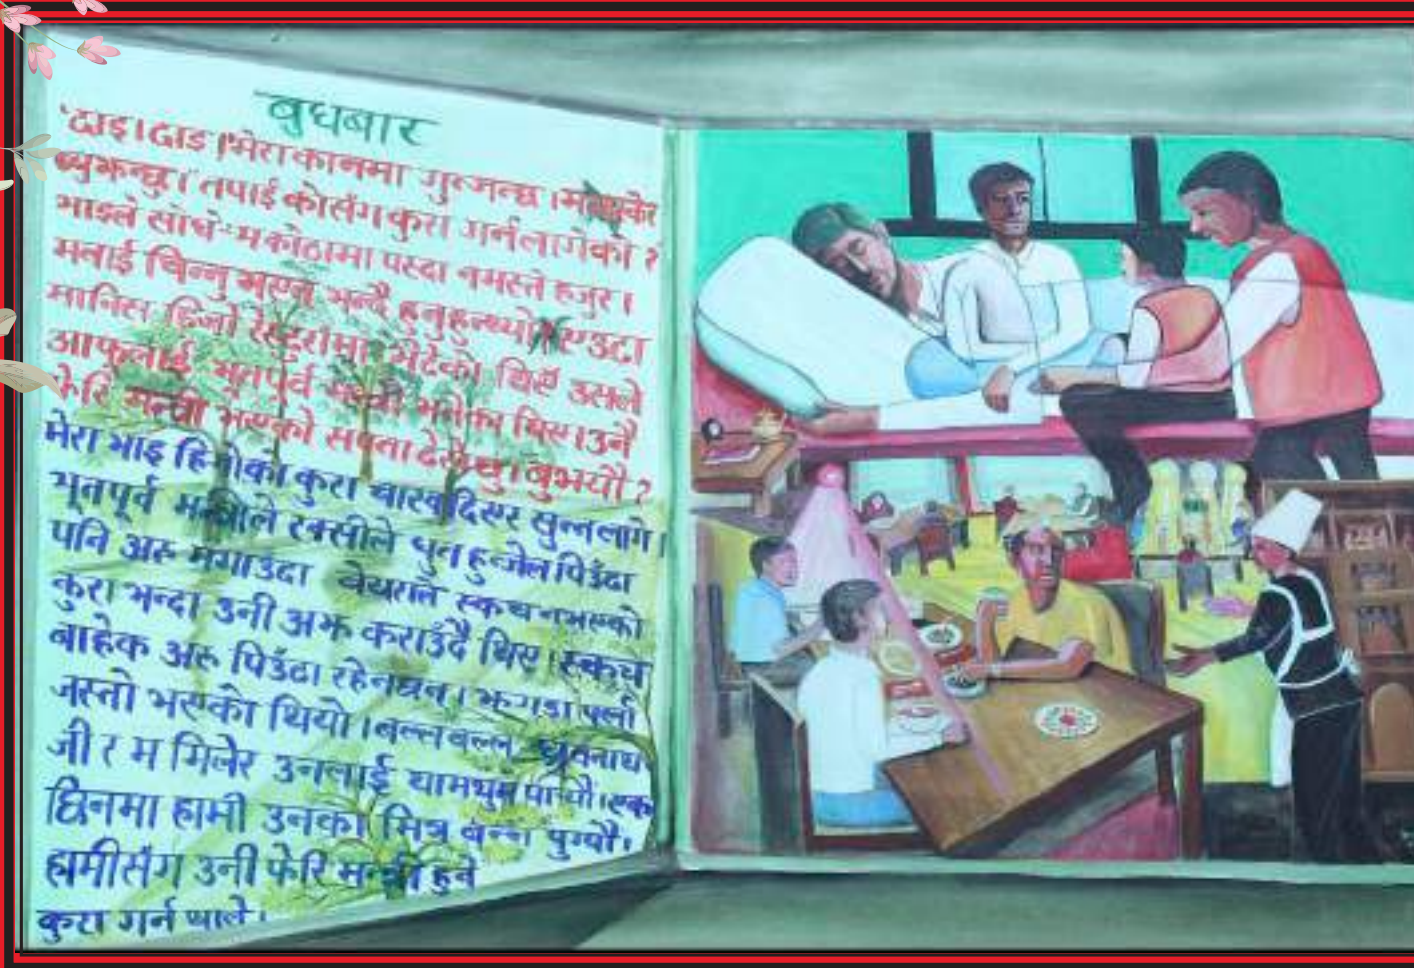 बुधबार
'दाइ।दाइ।'मेरा कानमा गुन्जन्छ।म
ब्युझन्छु। "तपाई कोसँग कुरा गर्नलागेको ?
भाइले सोधे-"म कोठामा पस्दा नमस्ते हजुर।
मलाई चिन्नु भएन भन्दै हुनुहुन्थ्यो। एउटा
मानिस हिजो रेस्टुराँमा भेटेको थिएँ उसले
आफूलाई भूतपूर्व मन्त्री भनेका थिए।उनै
फेरि मन्त्री भएको सपना देखेछु।बुझ्यौ ?
मेरा भाइ हिजोको कुरा चाख दिएर सुन्न लागे।
भूतपूर्व मन्त्रीले रक्सीले धुत हुन्जेल पिउँदा
पनि अरु मगाउदा बेयराले स्कच नभएको
कुरा भन्दा उनी अझ कराउँदै थिए।स्कच
बाहेक अरु पिउँदा रहेनछन्।झगडा पर्ला
जस्तो भएको थियो।बल्लबल्ल ध्रुवनाथ
जी र म मिलेर उनलाई थामथुम पार्‍यौं।एक
छिनमा हामी उनका मित्र बन्न पुग्यौं।
हामीसँग उनी फेरि मन्त्री हुने
कुरा गर्न थाले।